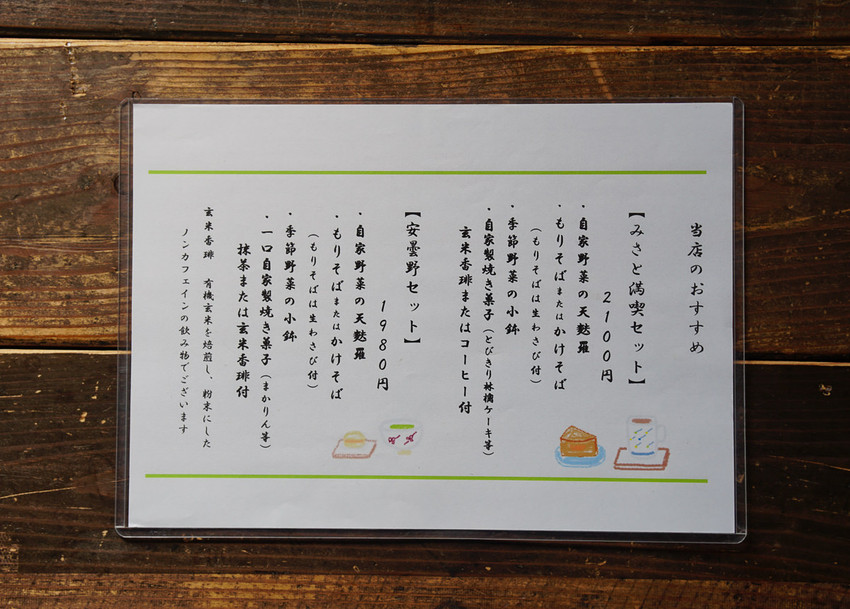 当店のおすすめ
【みさと満喫セット】
2100円
・自家野菜の天麩羅
・もりそばまたはかけそば
（もりそばは生わさび付）
・季節野菜の小鉢
・自家製焼き菓子（とびきり林檎ケーキ等）
玄米香琲またはコーヒー付
【安曇野セット】
1980円
・自家野菜の天麩羅
・もりそばまたはかけそば
（もりそばは生わさび付）
・季節野菜の小鉢
・一口自家製焼き菓子（まかりん等）
抹茶または玄米香琲付
玄米香琲　有機玄米を焙煎し、粉末にした
ノンカフェインの飲み物でございます